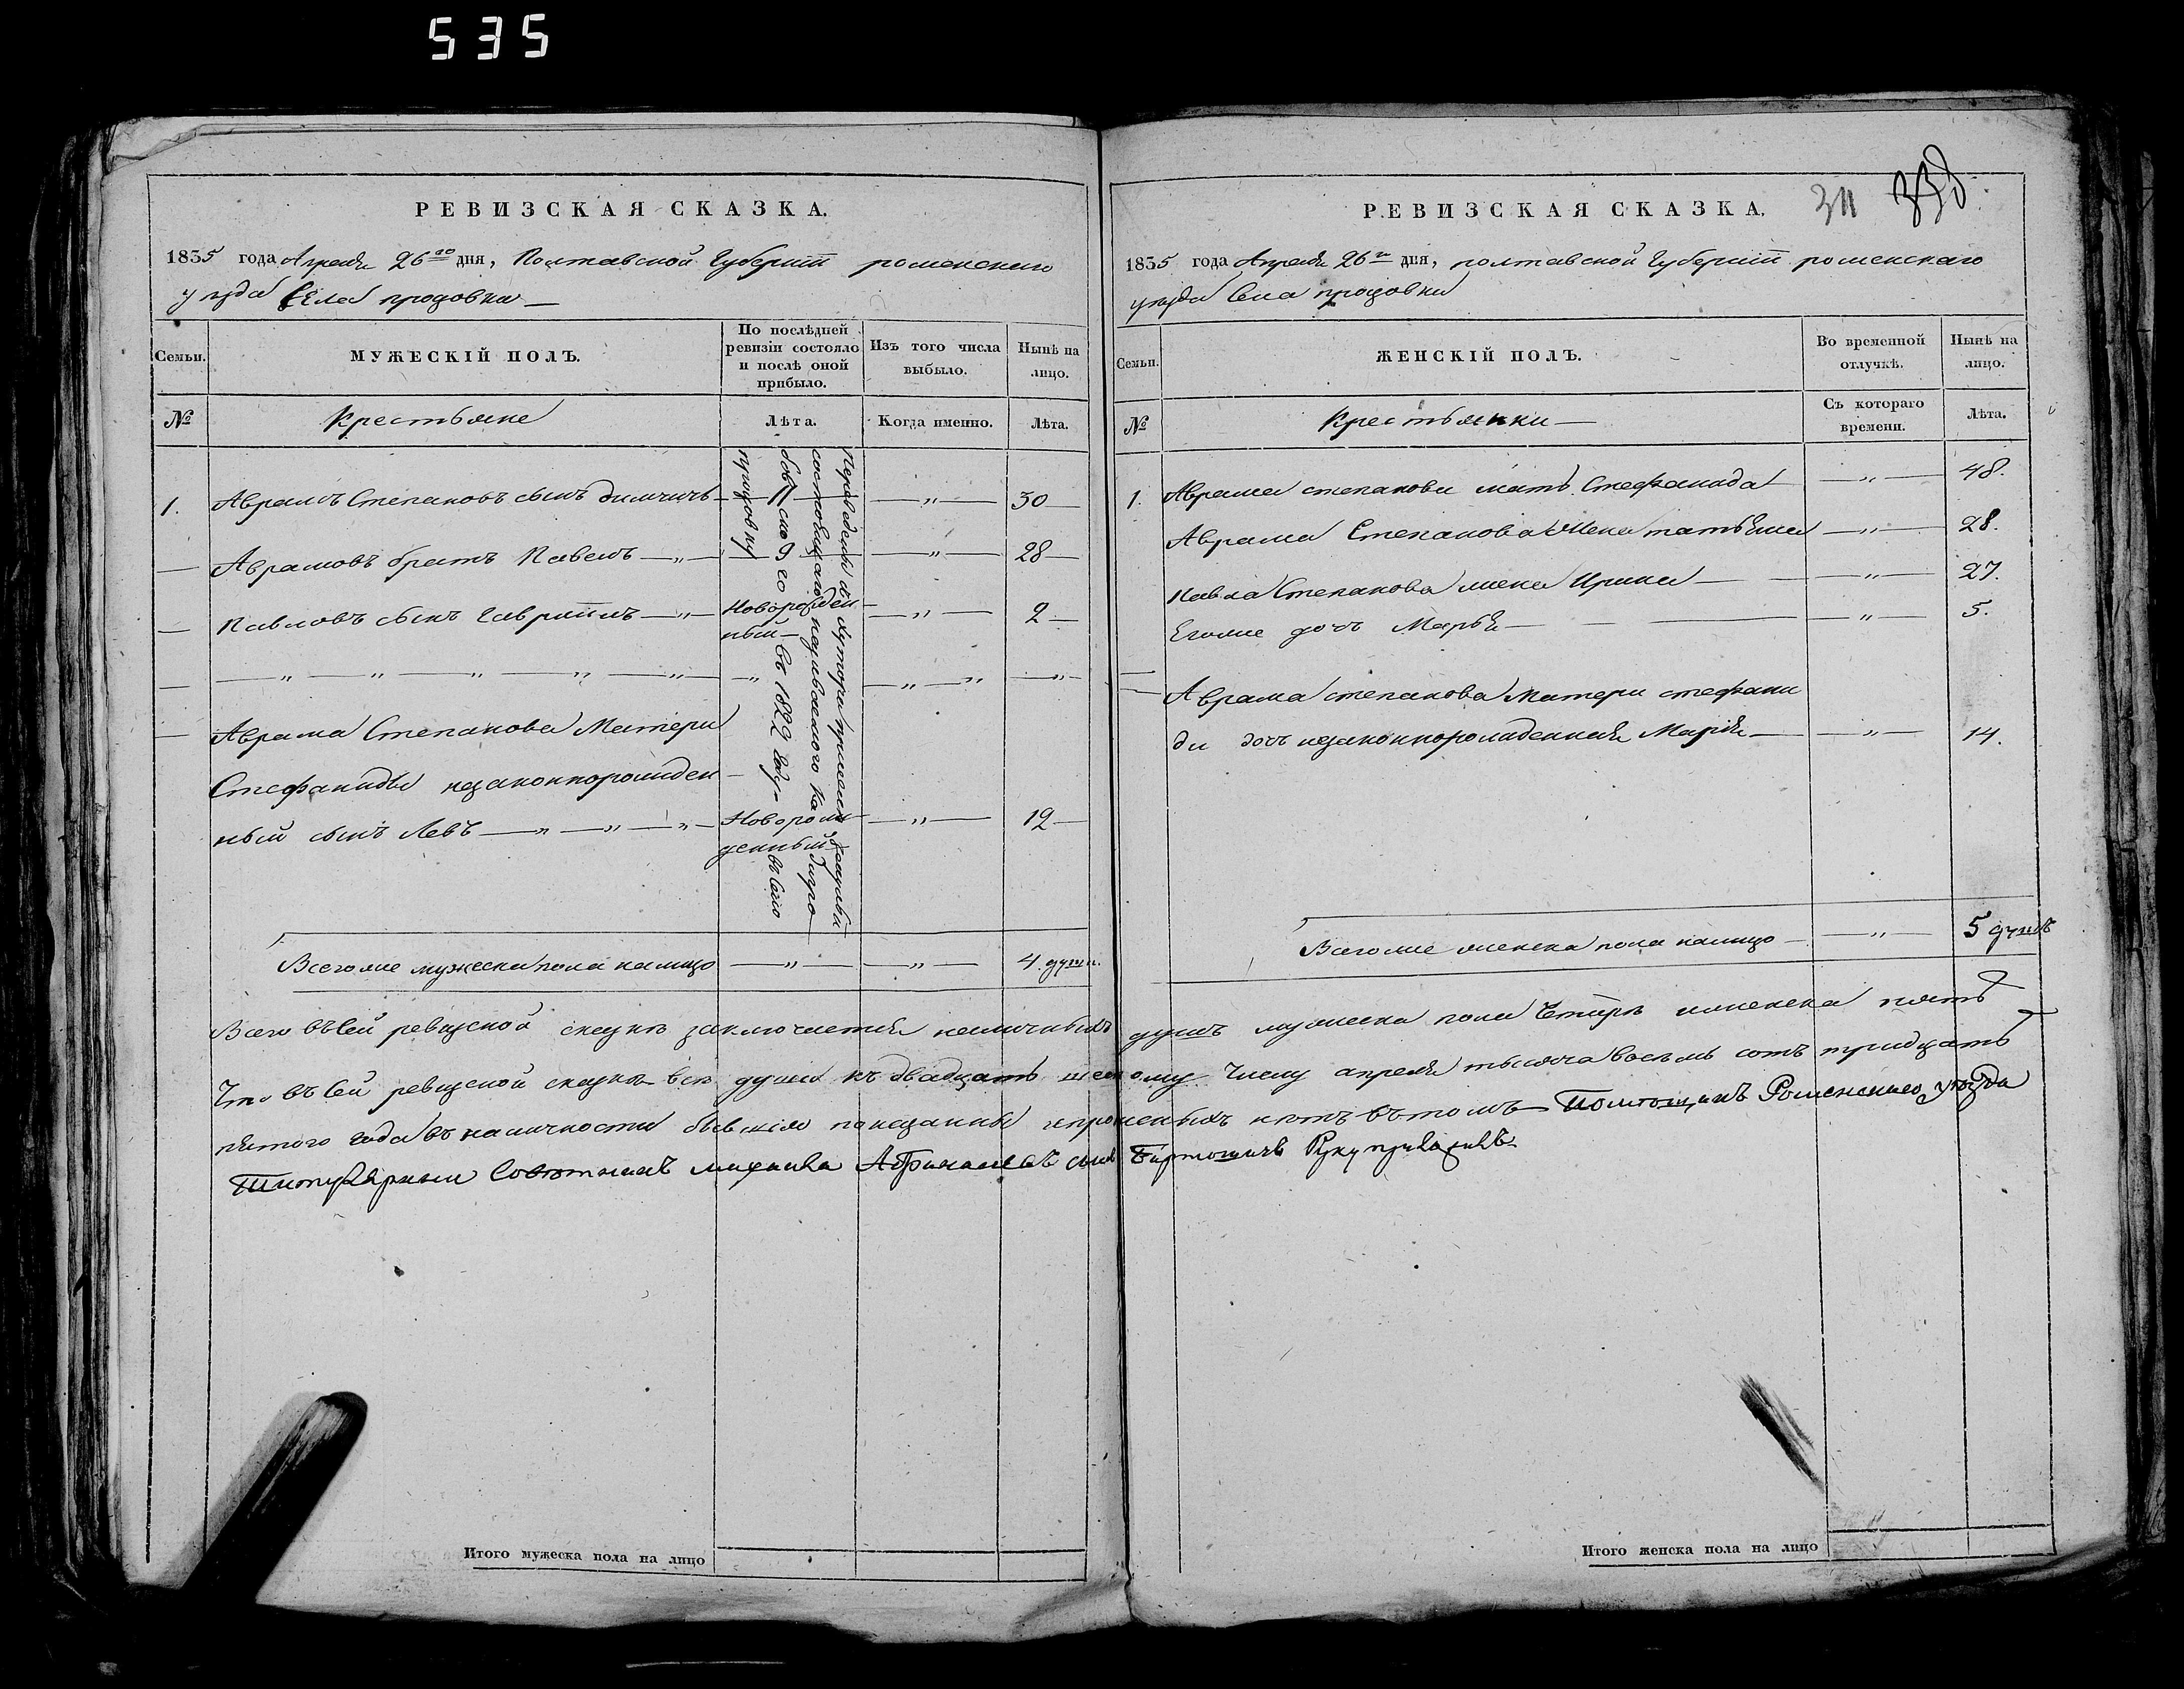 535
РЕВИЗСКАЯ СКАЗКА.
1835 года Апреля 26го дня, Полтавской Губернiи роменского
уезда Села процовка
Семьи.
МУЖЕСКІЙ ПОЛЪ.
По послѣдней ревизіи состояло и послѣ оной прибыло.
Изъ того числа выбыло.
Нынѣ на лицо.
№
Крестьяне
Лѣта.
Когда именно.
Лѣта.
1. Аврамъ Степановъ сынъ 11 — " — 30
Аврамовъ братъ Павелъ — " — 9 — " — 28
Павловъ сынъ Гаврiилъ — " — Новорожден — " — 2
ный
Аврама Степанова Матери
Стефаниды незаконнорожден
ный сынъ Левъ — " — " — " — Новорож — " — 12
денный
въ 1822 году
Всегоже мужеска пола налицо — " — " — 4 души.
РЕВИЗСКАЯ СКАЗКА.
311
1835 года Апреля 26го дня, полтавской Губернiи роменскаго
уезда Села процовки
Семьи.
ЖЕНСКІЙ ПОЛЪ.
Во временной отлучкѣ.
Нынѣ на лицо.
№
Крестьянки
Съ котораго времени.
Лѣта.
1. Аврама степанова мать Стефанида — " — 48.
Аврама Степанова Жена татьяна — " — 28.
Павла Степанова жена Ирина — " — 27.
Егоже дочь Марья — " — 5.
Аврама степанова Матери стефани
ди дочь незаконнорожденная Марiя — " — 14.
Всегоже женска пола налицо — " — 5 душъ
Всего въ Сей ревизской сказке заключается наличныхъ душъ мужеска пола Четыре женска пять
Что въ Сей ревизской сказке все души къ двадцать шестому Числу апреля тысяча восемь сотъ тридцать
пятого года въ наличности бывшiе показаны и пропеныхъ нетъ въ томъ Помещикъ Роменскаго уезда
Титулярный Советникъ сынъ Руку приложилъ
Итого мужеска пола на лицо
Итого женска пола на лицо